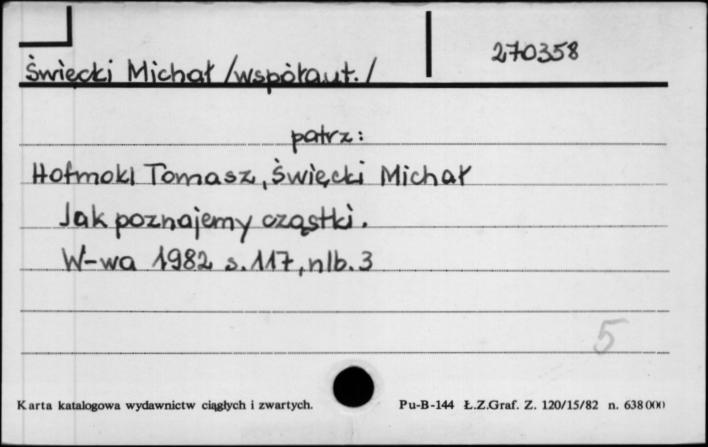 270358
Święcki Michał /współaut./
patrz:
Hofmokl Tomasz, Święcki Michał
Jak poznajemy cząstki.
W-wa 1982 s.117, nlb.3
5
Karta katalogowa wydawnictw ciągłych i zwartych. Pu-B-144 Ł.Z.Graf. Z. 120/15/82 n. 638000